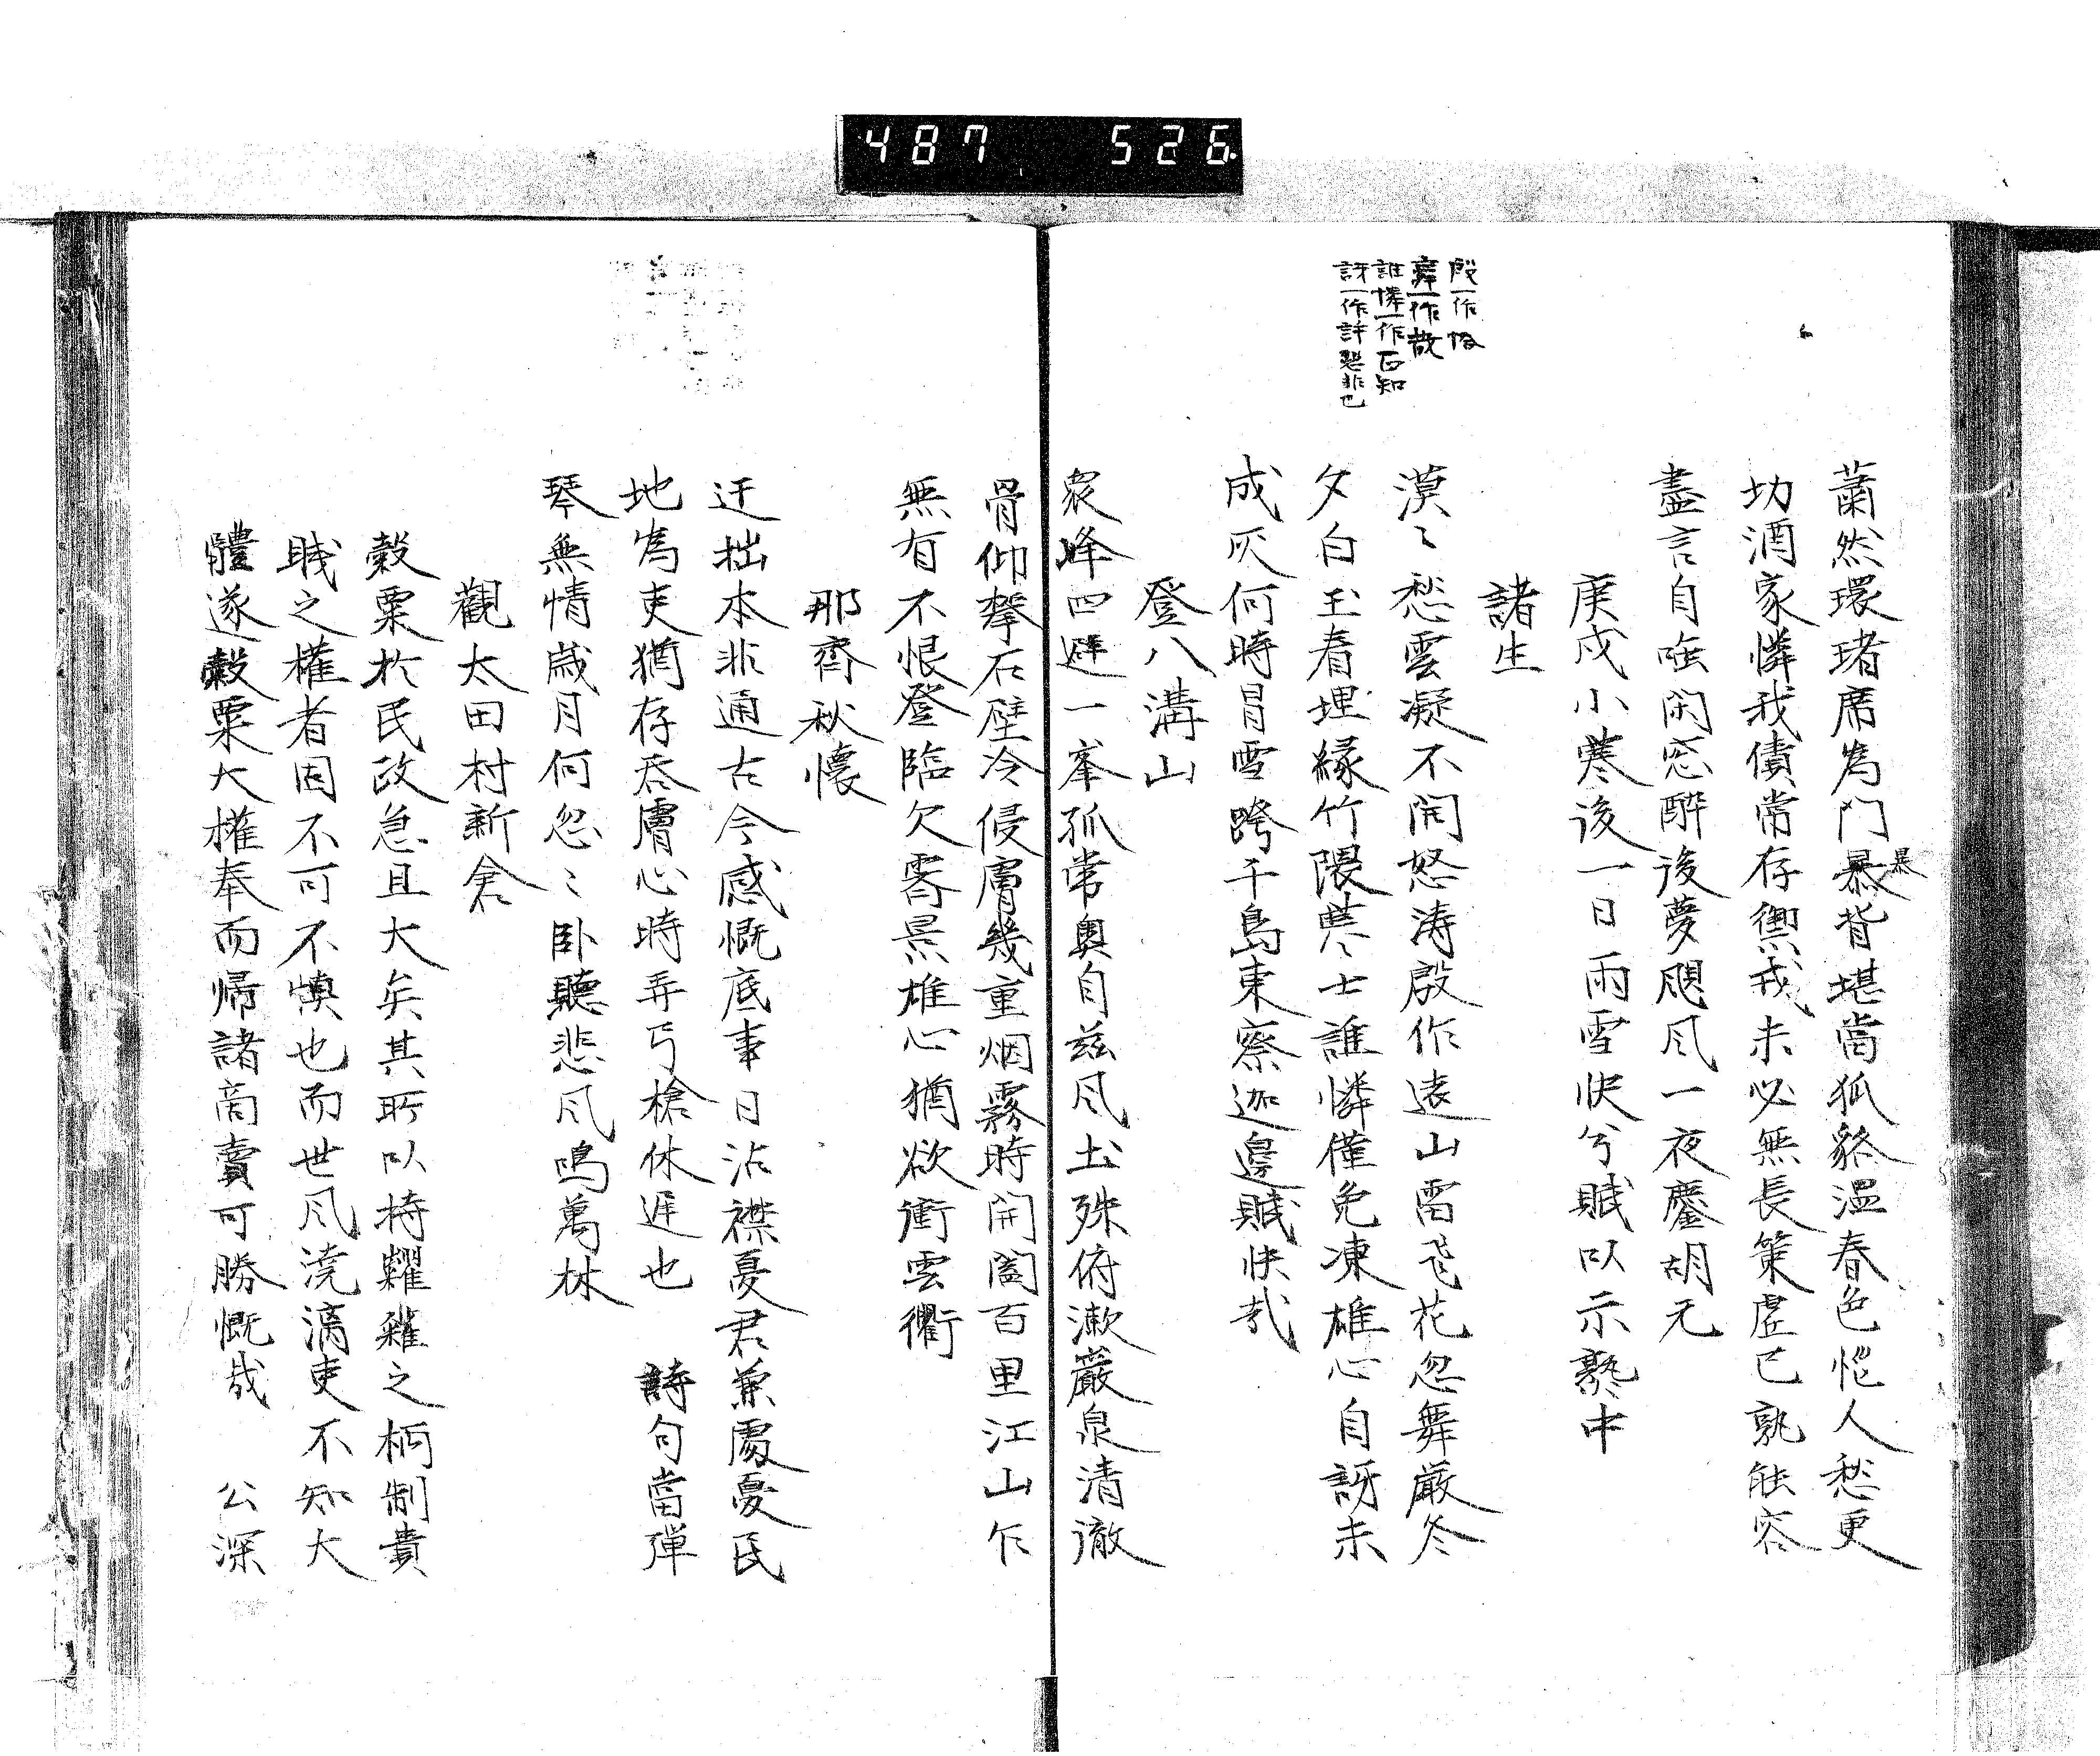 487 526
殷一作怪
舞一作散
誰憐一作百知
訝一作許恐非也
蕭然環堵席為門暴背堪當狐貉温春色惱人愁更
暴
切酒家憐我債常存禦戎未必無長策虚已孰能容
盡言自嗤閑窓醉後夢颶风一夜鏖胡元
庚戌小寒後一日雨雪快兮賦以示塾中
諸生
漠〻愁雲凝不開怒涛殷作遠山雷飛花忽舞厳冬
夕白玉看埋緑竹隈寒士誰憐僅免凍雄心自訝未
成灰何時冒雪跨千島東察迦邊賦快哉
登八溝山
衆峰四避一峯孤常奥自兹风土殊俯漱巖泉清徹
骨仰攀石壁冷侵膚幾重烟霧時開闔百里江山乍
無有不恨登臨欠霽景雄心猶欲衝雲衢
那齊秋懐
迂拙本非通古今感慨底事日沾襟憂君兼属憂民
地為吏猶存忝膚心時弄弓槍休遅也 詩句當彈
琴無情歳月何忽〻卧聽悲风鳴萬林
觀太田村新倉
穀粟於民政急且大矣其所以持糶糴之柄制貴
賎之權者因不可不慎也而世风澆漓吏不知大
體遂穀粟大權奉而帰諸商賣可勝慨哉 公深